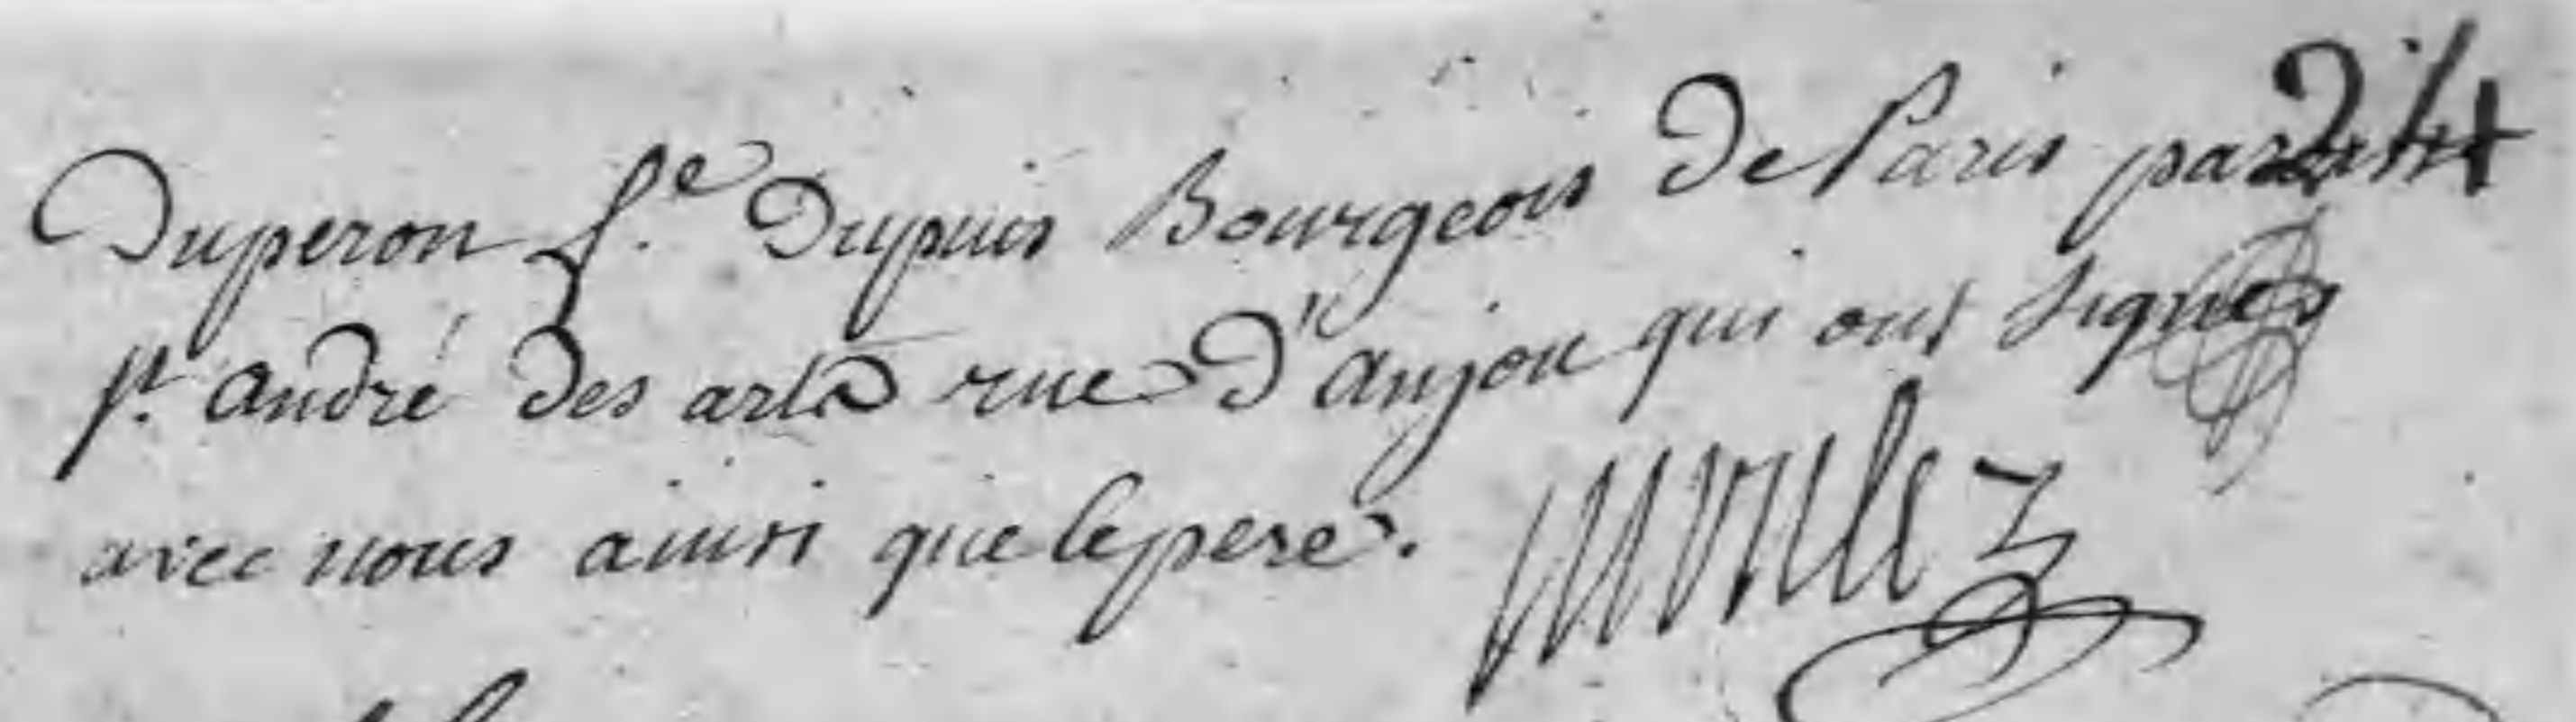 24
Duperon f.e Dupuis Bourgeois De Paris par
St. andré des arts rue D'anjou qui ont signé
avec nous ainsi que le pere.